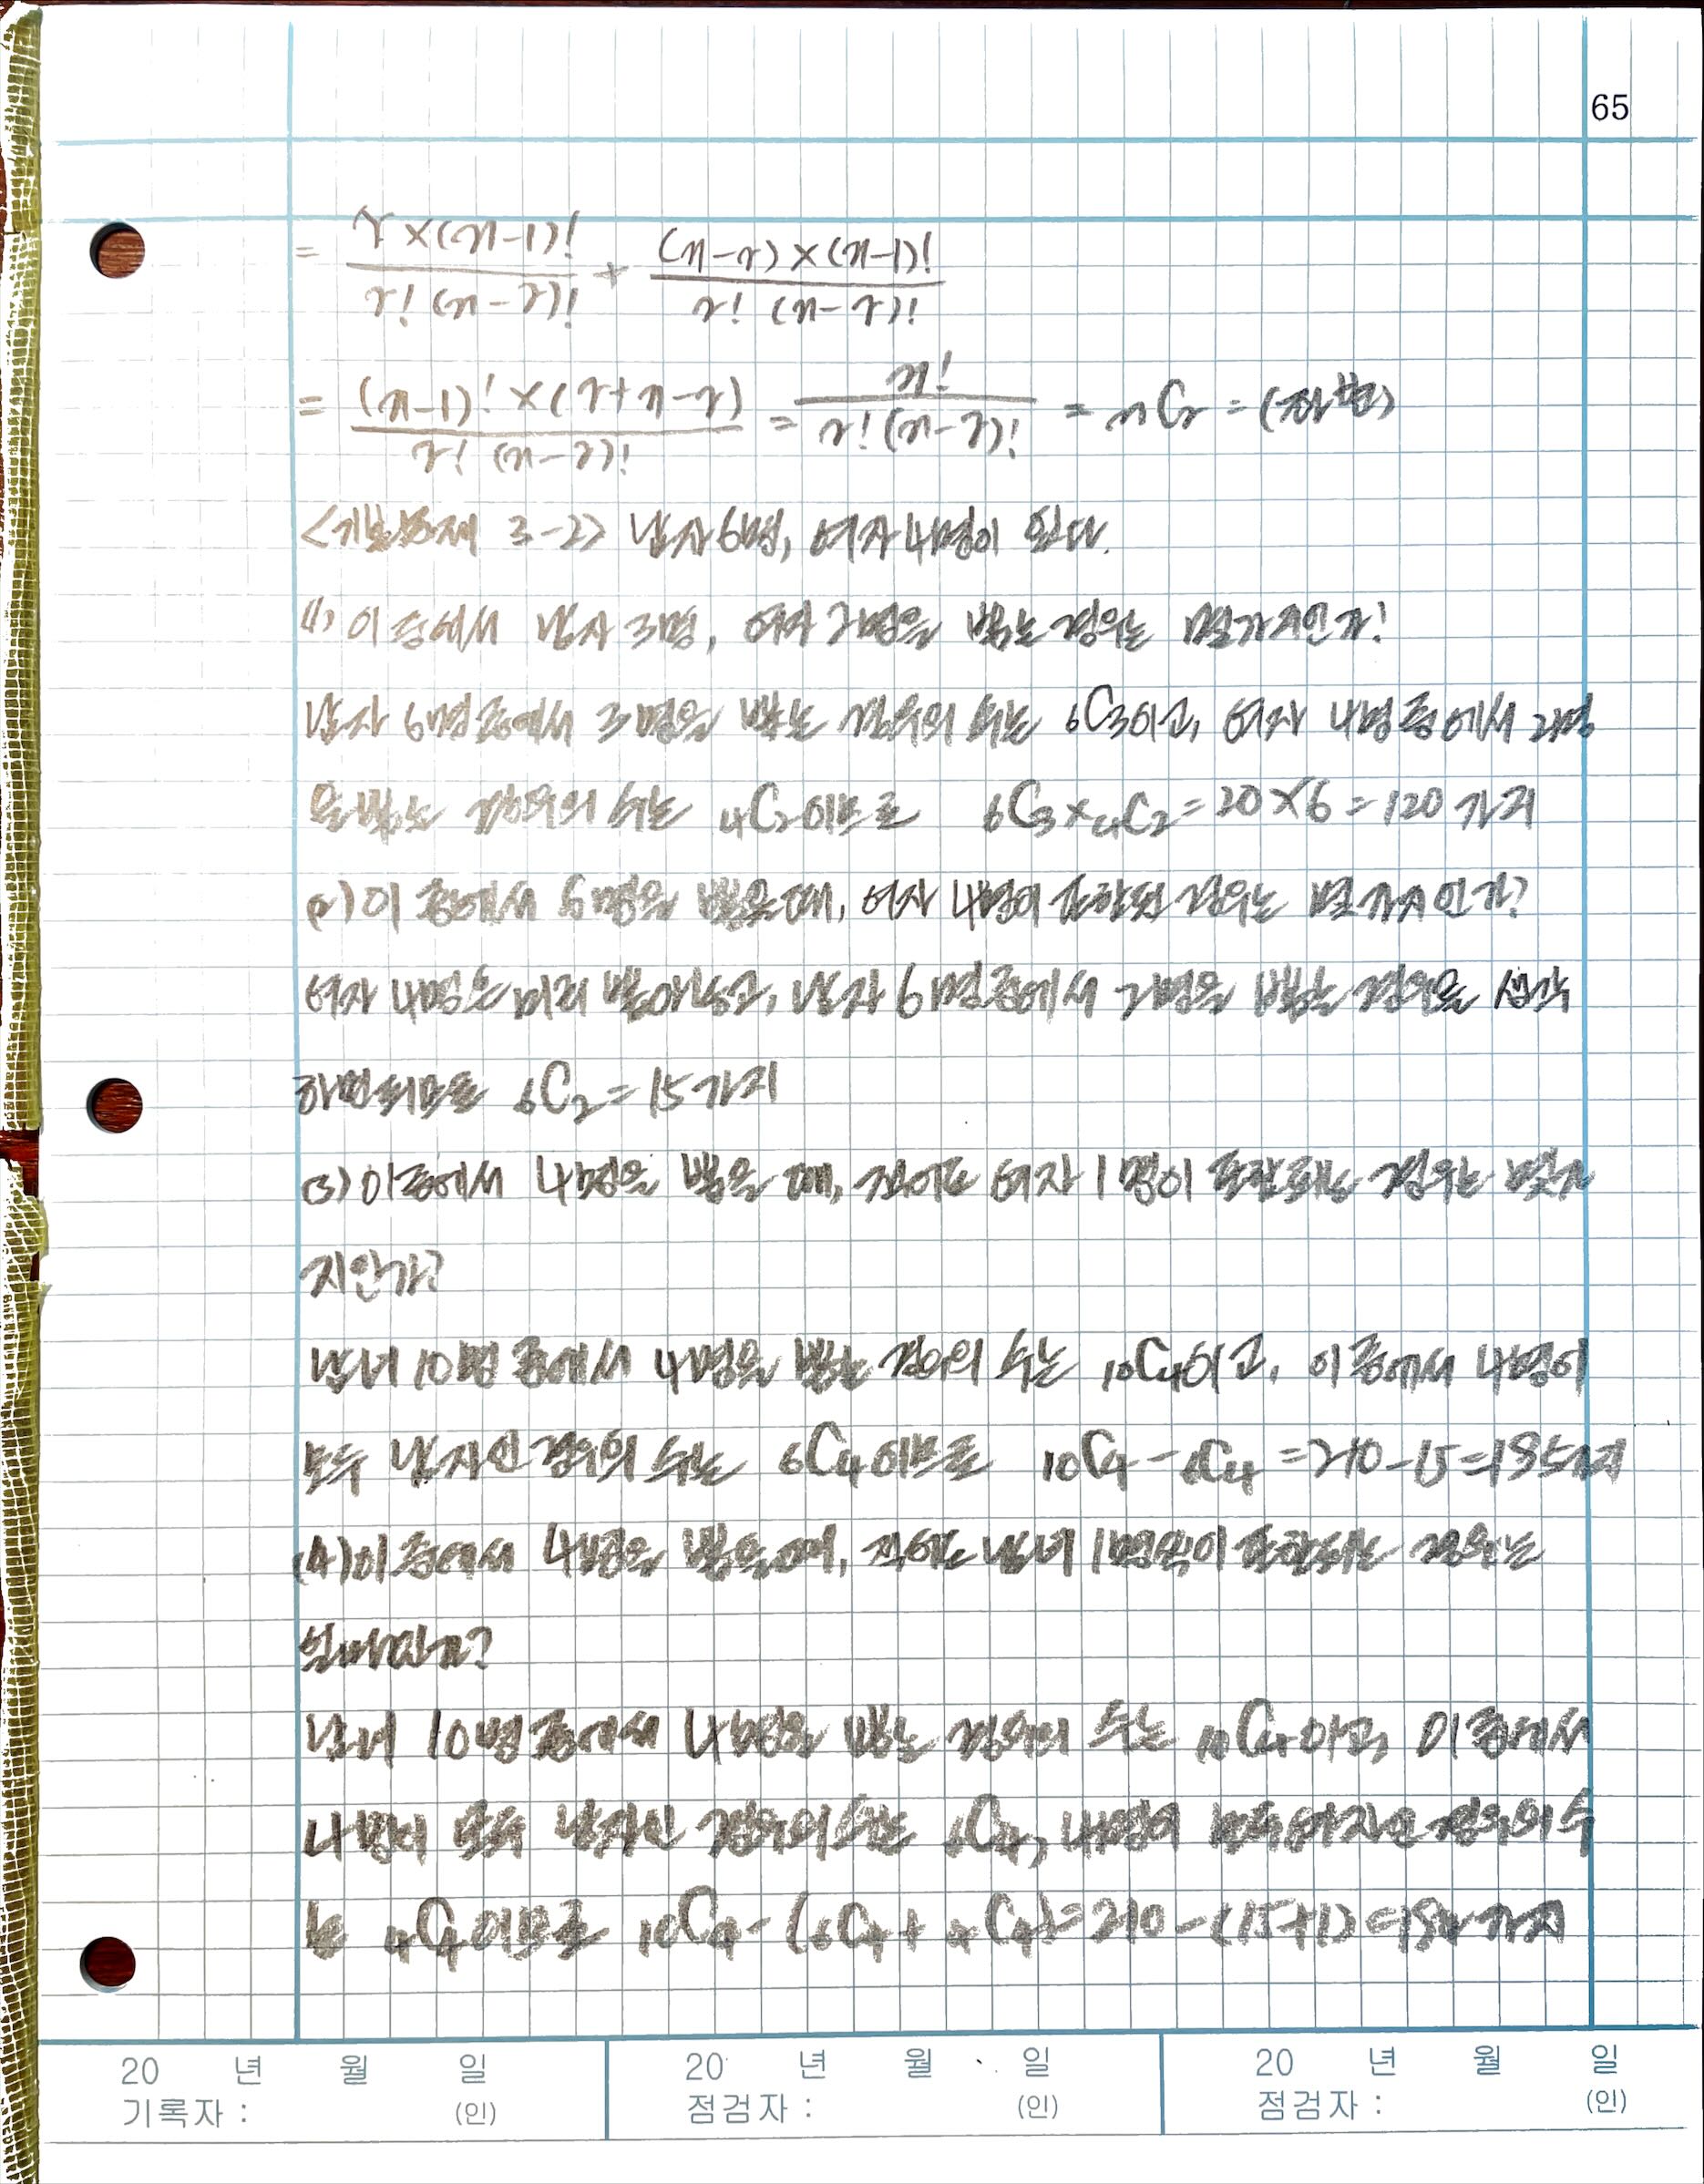 65
= r×(n-1)! / r!(n-r)! + (n-r)×(n-1)! / r!(n-r)!
= (n-1)!×(r+n-r) / r!(n-r)! = n! / r!(n-r)! = nCr = (좌변)
<기본문제 3-2> 남자 6명, 여자 4명이 있다.
(1) 이 중에서 남자 3명, 여자 2명을 뽑는 경우는 몇가지인가?
남자 6명중에서 3명을 뽑는 경우의 수는 6C3이고, 여자 4명중에서 2명
을 뽑는 경우의 수는 4C2이므로 6C3×4C2=20×6=120가지
(2) 이 중에서 6명을 뽑을때, 여자 4명이 포함된 경우는 몇가지인가?
여자 4명은 미리 뽑아놓고, 남자 6명중에서 2명을 뽑는 경우를 생각
하면되므로 6C2=15가지
(3) 이중에서 4명을 뽑을 때, 적어도 여자 1명이 포함되는 경우는 몇가
지인가?
남녀 10명 중에서 4명을 뽑는 경우의 수는 10C4이고, 이중에서 4명이
모두 남자인 경우의 수는 6C4이므로 10C4-6C4=210-15=195가지
(4) 이 중에서 4명을 뽑을때, 적어도 남녀 1명씩이 포함되는 경우는
얼마인가?
남녀 10명중에서 4명을 뽑는 경우의 수는 10C4이고, 이중에서
4명이 모두 남자인 경우의수는 6C4, 4명이 모두여자인 경우의 수
는 4C4이므로 10C4-(6C4+4C4)=210-(15+1)=194가지
20 년 월 일 20 년 월 일 20 년 월 일
기록자 : (인) 점검자 : (인) 점검자 : (인)